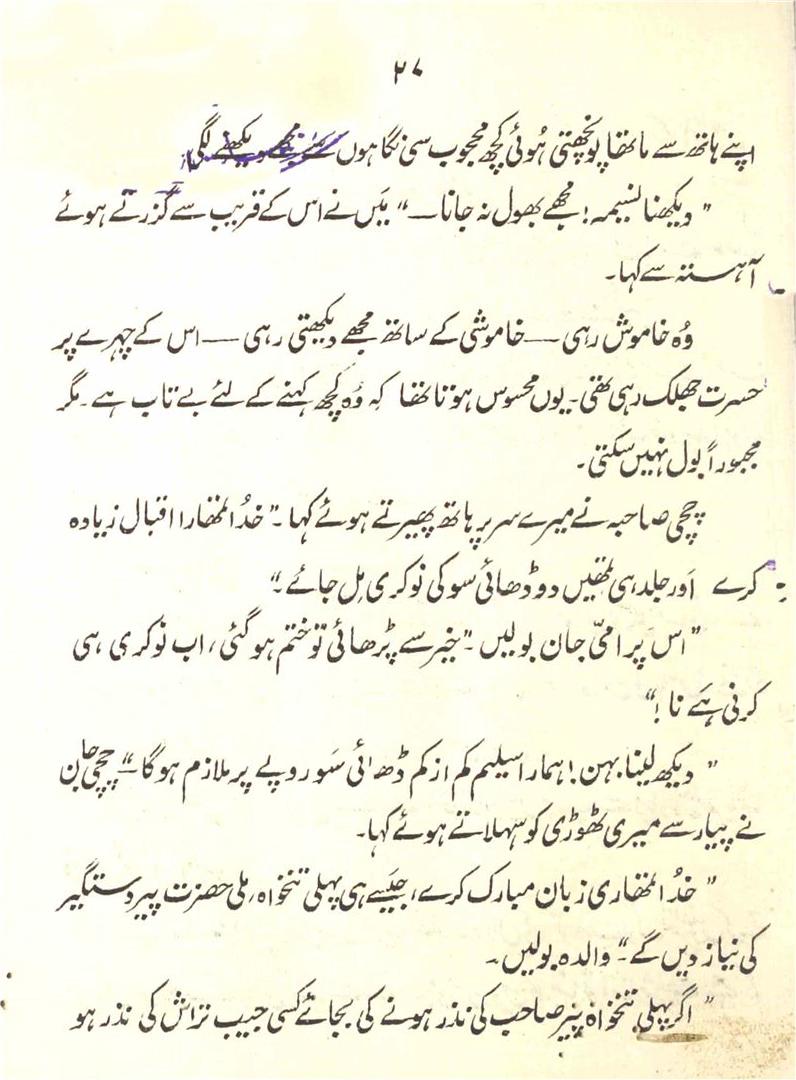 ۲۷
اپنے ہاتھ سے ماتھا پونچھتی ہُوئی کچھ محجوب سی نگاہوں سے مجھے دیکھنے لگی
” دیکھنا نسیمہ! مجھے بھول نہ جانا—“ میَں نے اس کے قریب سے گزرتے ہوئے
آہستہ سے کہا۔
وُہ خاموش رہی — خاموشی کے ساتھ مجھے دیکھتی رہی — اس کے چہرے پر
حسرت جھلک رہی تھی۔ یوں محسوس ہوتا تھا کہ وُہ کچھ کہنے کے لئے بے تاب ہے۔ مگر
مجبوراً بول نہیں سکتی۔
چچی صاحبہ نے میرے سر پر ہاتھ پھیرتے ہوئے کہا۔ ”خدُا تمھارا اقبال زیادہ
کرے اَور جلد ہی تمھیں دو ڈھائی سو کی نوکری مِل جائے۔“
”اس پر امیّ جان بولیں۔ ”خیر سے پڑھائی تو ختم ہو گئی، اب نوکری ہی
کرنی ہَے نا!“
” دیکھ لینا بہن! ہمارا سلیم کم از کم ڈھائی سَو روپے پر ملازم ہو گا—“ چچی جان
نے پیار سے میری ٹھوڑی کو سہلاتے ہوئے کہا۔
” خدُا تمھاری زبان مبارک کرے، جیَسے ہی پہلی تنخواہ ملی حضرت پیر دستگیر
کی نیاز دیں گے“ والدہ بولیں۔
” اگر پہلی تنخواہ پیر صاحب کی نذر ہونے کی بجائے کسی جیب تراش کی نذر ہو